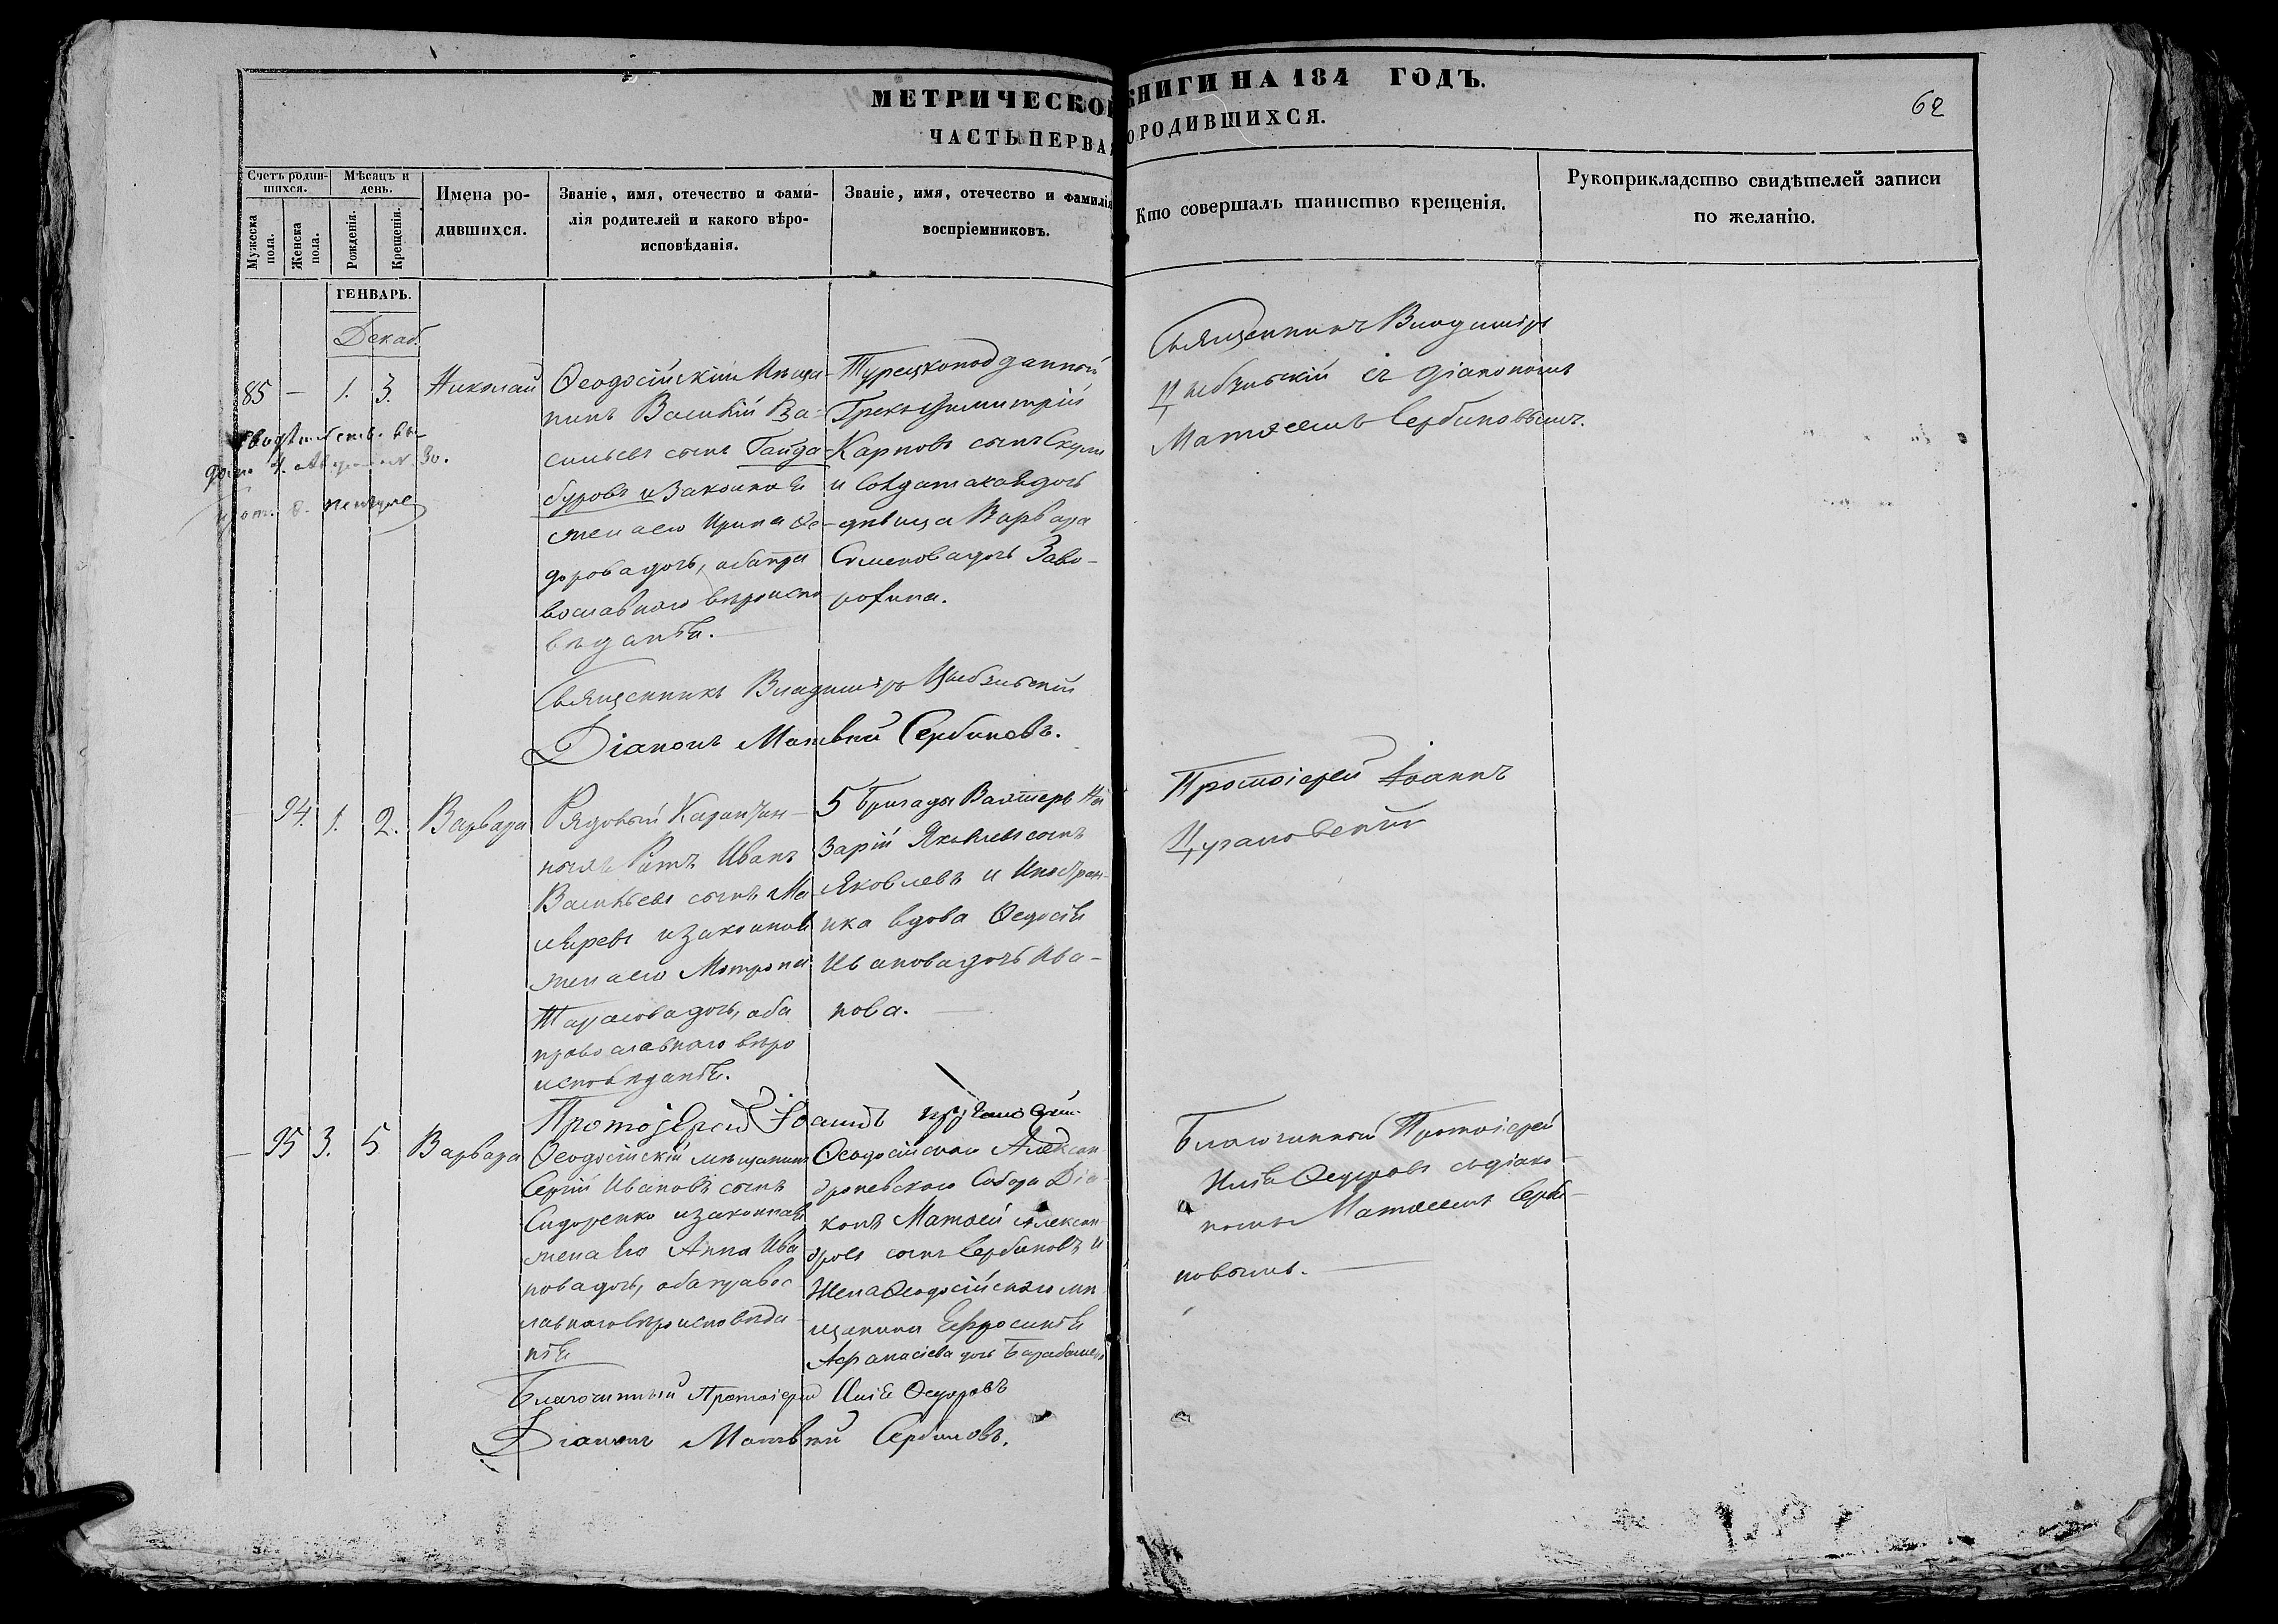 МЕТРИЧЕСКОЙ КНИГИ НА 184 ГОДЪ.
62
ЧАСТЬ ПЕРВАЯ О РОДИВШИХСЯ.
Счетъ родив-
шихся.
Мужеска пола.
Женска пола.
Мѣсяцъ и
день.
Рожденія.
Крещенія.
Имена ро-
дившихся.
Званіе, имя, отечество и фами-
лія родителей и какого вѣро-
исповѣданія.
Званіе, имя, отечество и фамилія
воспріемниковъ.
Кто совершалъ таинство крещенія.
Рукоприкладство свидѣтелей записи
по желанію.
ГЕНВАРЬ.
Декаб.
85 — 1. 3. Николай
Ѳеодосійскій Мѣща-
нинъ Василій Ва-
сильевъ сынъ Гайда-
буровъ и законная
жена его Ирина Ѳе-
дорова дочь, оба пра
вославнаго вѣроиспо
вѣданія.
Турецкоподданный
Грекъ Димитрій
Карповъ сынъ
и Солдатская дочь
дѣвица Варвара
Семенова дочь
Священникъ Владиміръ
съ Діакономъ
Матѳеемъ Сербиновымъ.
Священникъ Владиміръ
Діаконъ Матвѣй Сербиновъ.
— 94. 1. 2. Варвара
Рядовый Карантин-
ной Ротъ Иванъ
Васильевъ сынъ Ма
ляревъ и законная
жена его Матрона
Тарасова дочь, оба
православнаго вѣро
исповѣданія.
5 бригады Вахтеръ На
зарій Яковлевъ сынъ
Яковлевъ и Иностран-
ка вдова Ѳедосія
Иванова дочь Ива-
нова.
Протоіерей Іоаннъ
Протоіерей Іоаннъ
— 95 3. 5. Варвара
Ѳеодосійскій мѣщанинъ
Сергій Ивановъ сынъ
Сидоренко и законная
жена его Анна Ива
нова дочь, оба правос
лавнаго вѣроисповѣда
нія
Ѳеодосійскаго Алексан
дроневскаго Собора Діа
конъ Матѳей Алексан
дровъ сынъ Сербиновъ и
Жена Ѳеодосійскаго мѣ
щанина Ефросинія
Афанасіева дочь
Благочинный Протоіерей
Илія Ѳедоровъ съ діако-
номъ Матѳеемъ Серби-
новымъ.
Благочинный Протоіерей Илія Ѳедоровъ
Діаконъ Матвѣй Сербиновъ.